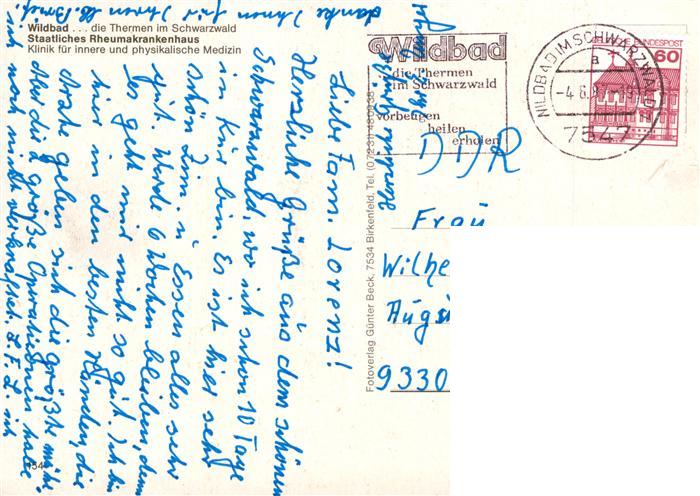 Wildbad . . . die Thermen im Schwarzwald
Staatliches Rheumakrankenhaus
Klinik für innere und physikalische Medizin
Liebe Fam. Lorenz!
Herzliche Grüße aus dem schönen
Schwarzwald, wo ich schon 10 Tage
in Kur bin. Es ist hier sehr
schön Zim. u. Essen alles sehr
gut. Werde 6 Wochen bleiben, denn
es geht mir nicht so gut. Ich bin
hier in den besten Händen, die
Ärzte geben sich die größte Mühe
Aber die 2 große Operationen habe
ich noch nicht verkraftet. L. F. L. ich
danke Ihnen für Ihren lb. Brief.
Fotoverlag Günter Beck, 7534 Birkenfeld, Tel. (07231) 480238
Wildbad
...die Thermen
im Schwarzwald
vorbeugen
heilen
erholen
WILDBAD IM SCHWARZWALD
a
-4.6.8
7547
DEUTSCHE BUNDESPOST
60
DDR
Frau
Wilhe
Augus
9330